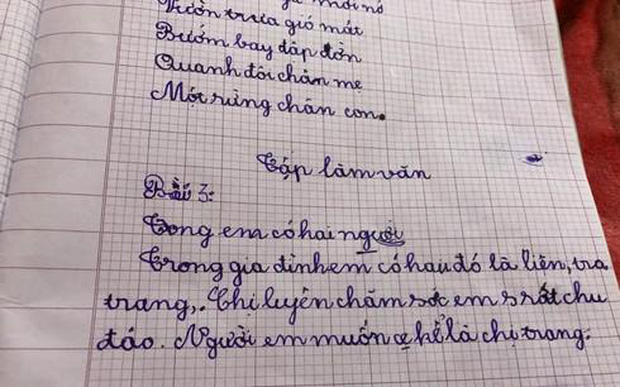 mới nở
Vườn trưa gió mát
Bướm bay dập dờn
Quanh đôi chân mẹ
Một rừng chân con.
Tập làm văn
Bài 3:
Trong em có hai người
Trong gia đình em có hau đó là liên, tra
trang,. Chị luyên chăm sóc em s rất chu
đáo. Người em muốn cẹ hể là chị trang.